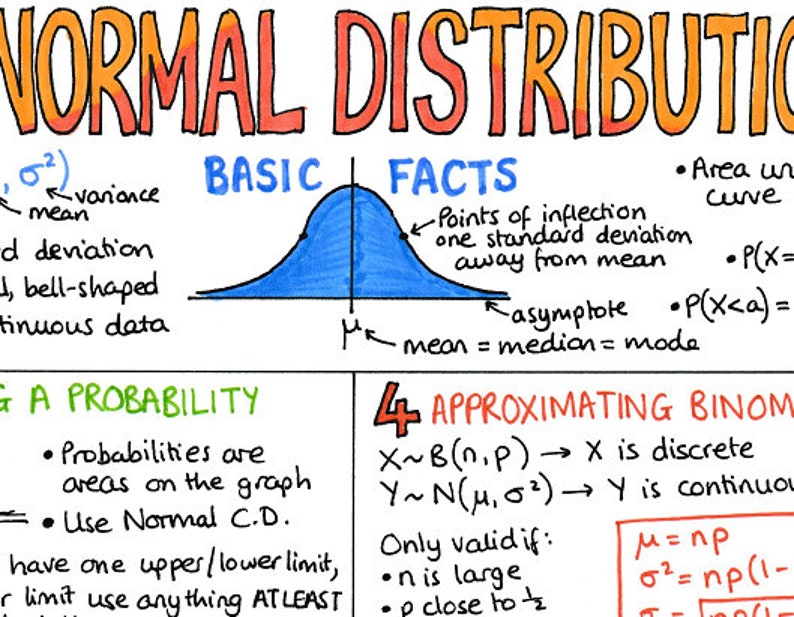 NORMAL DISTRIBUTIO
, σ²)
variance
mean
d deviation
, bell-shaped
tinuous data
BASIC FACTS
Points of inflection
one standard deviation
away from mean
asymptote
μ
mean = median = mode
• Area un
curve
• P(X=
• P(X<a) =
G A PROBABILITY
• Probabilities are
areas on the graph
• Use Normal C.D.
have one upper/lower limit,
r limit use anything AT LEAST
4 APPROXIMATING BINOM
X~B(n,p) → X is discrete
Y~N(μ,σ²) → Y is continuou
Only valid if:
• n is large
• p close to ½
μ = np
σ² = np(1-
σ = √np(1-